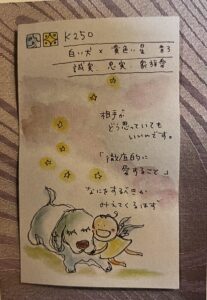 K250
白い犬 × 黄色い星 音3
誠実 忠実 家族愛
相手が
どう思っていても
いいんです。
「徹底的に
愛すること」
なにをするべきか
みえてくるはず